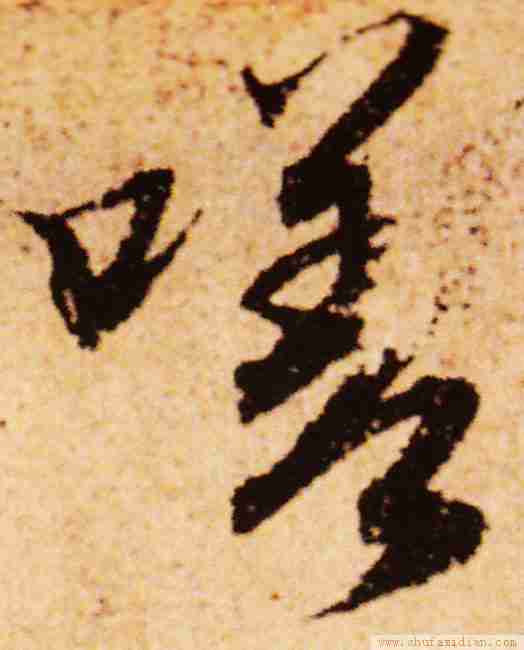 嗟
www.shufazidian.com